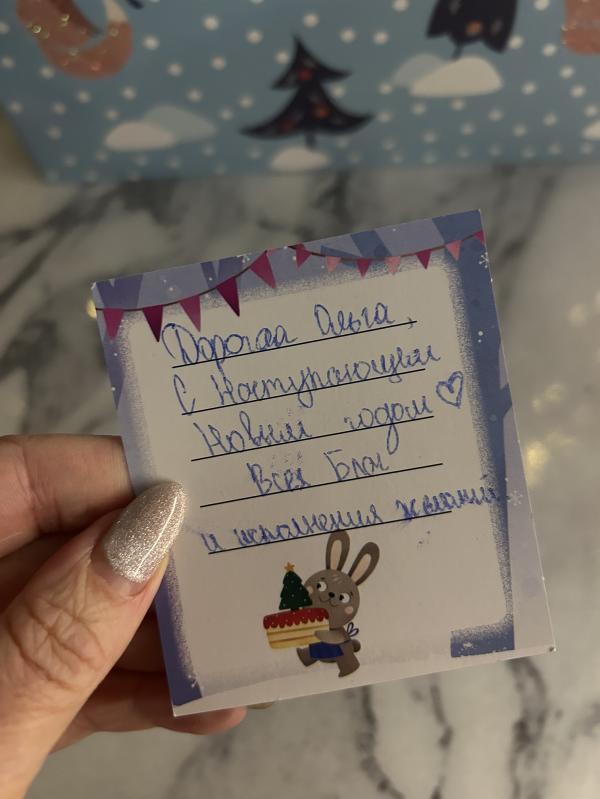 Дорогая Ольга,
С Наступающим
Новым годом ♡
Всех Благ
и исполнения желаний